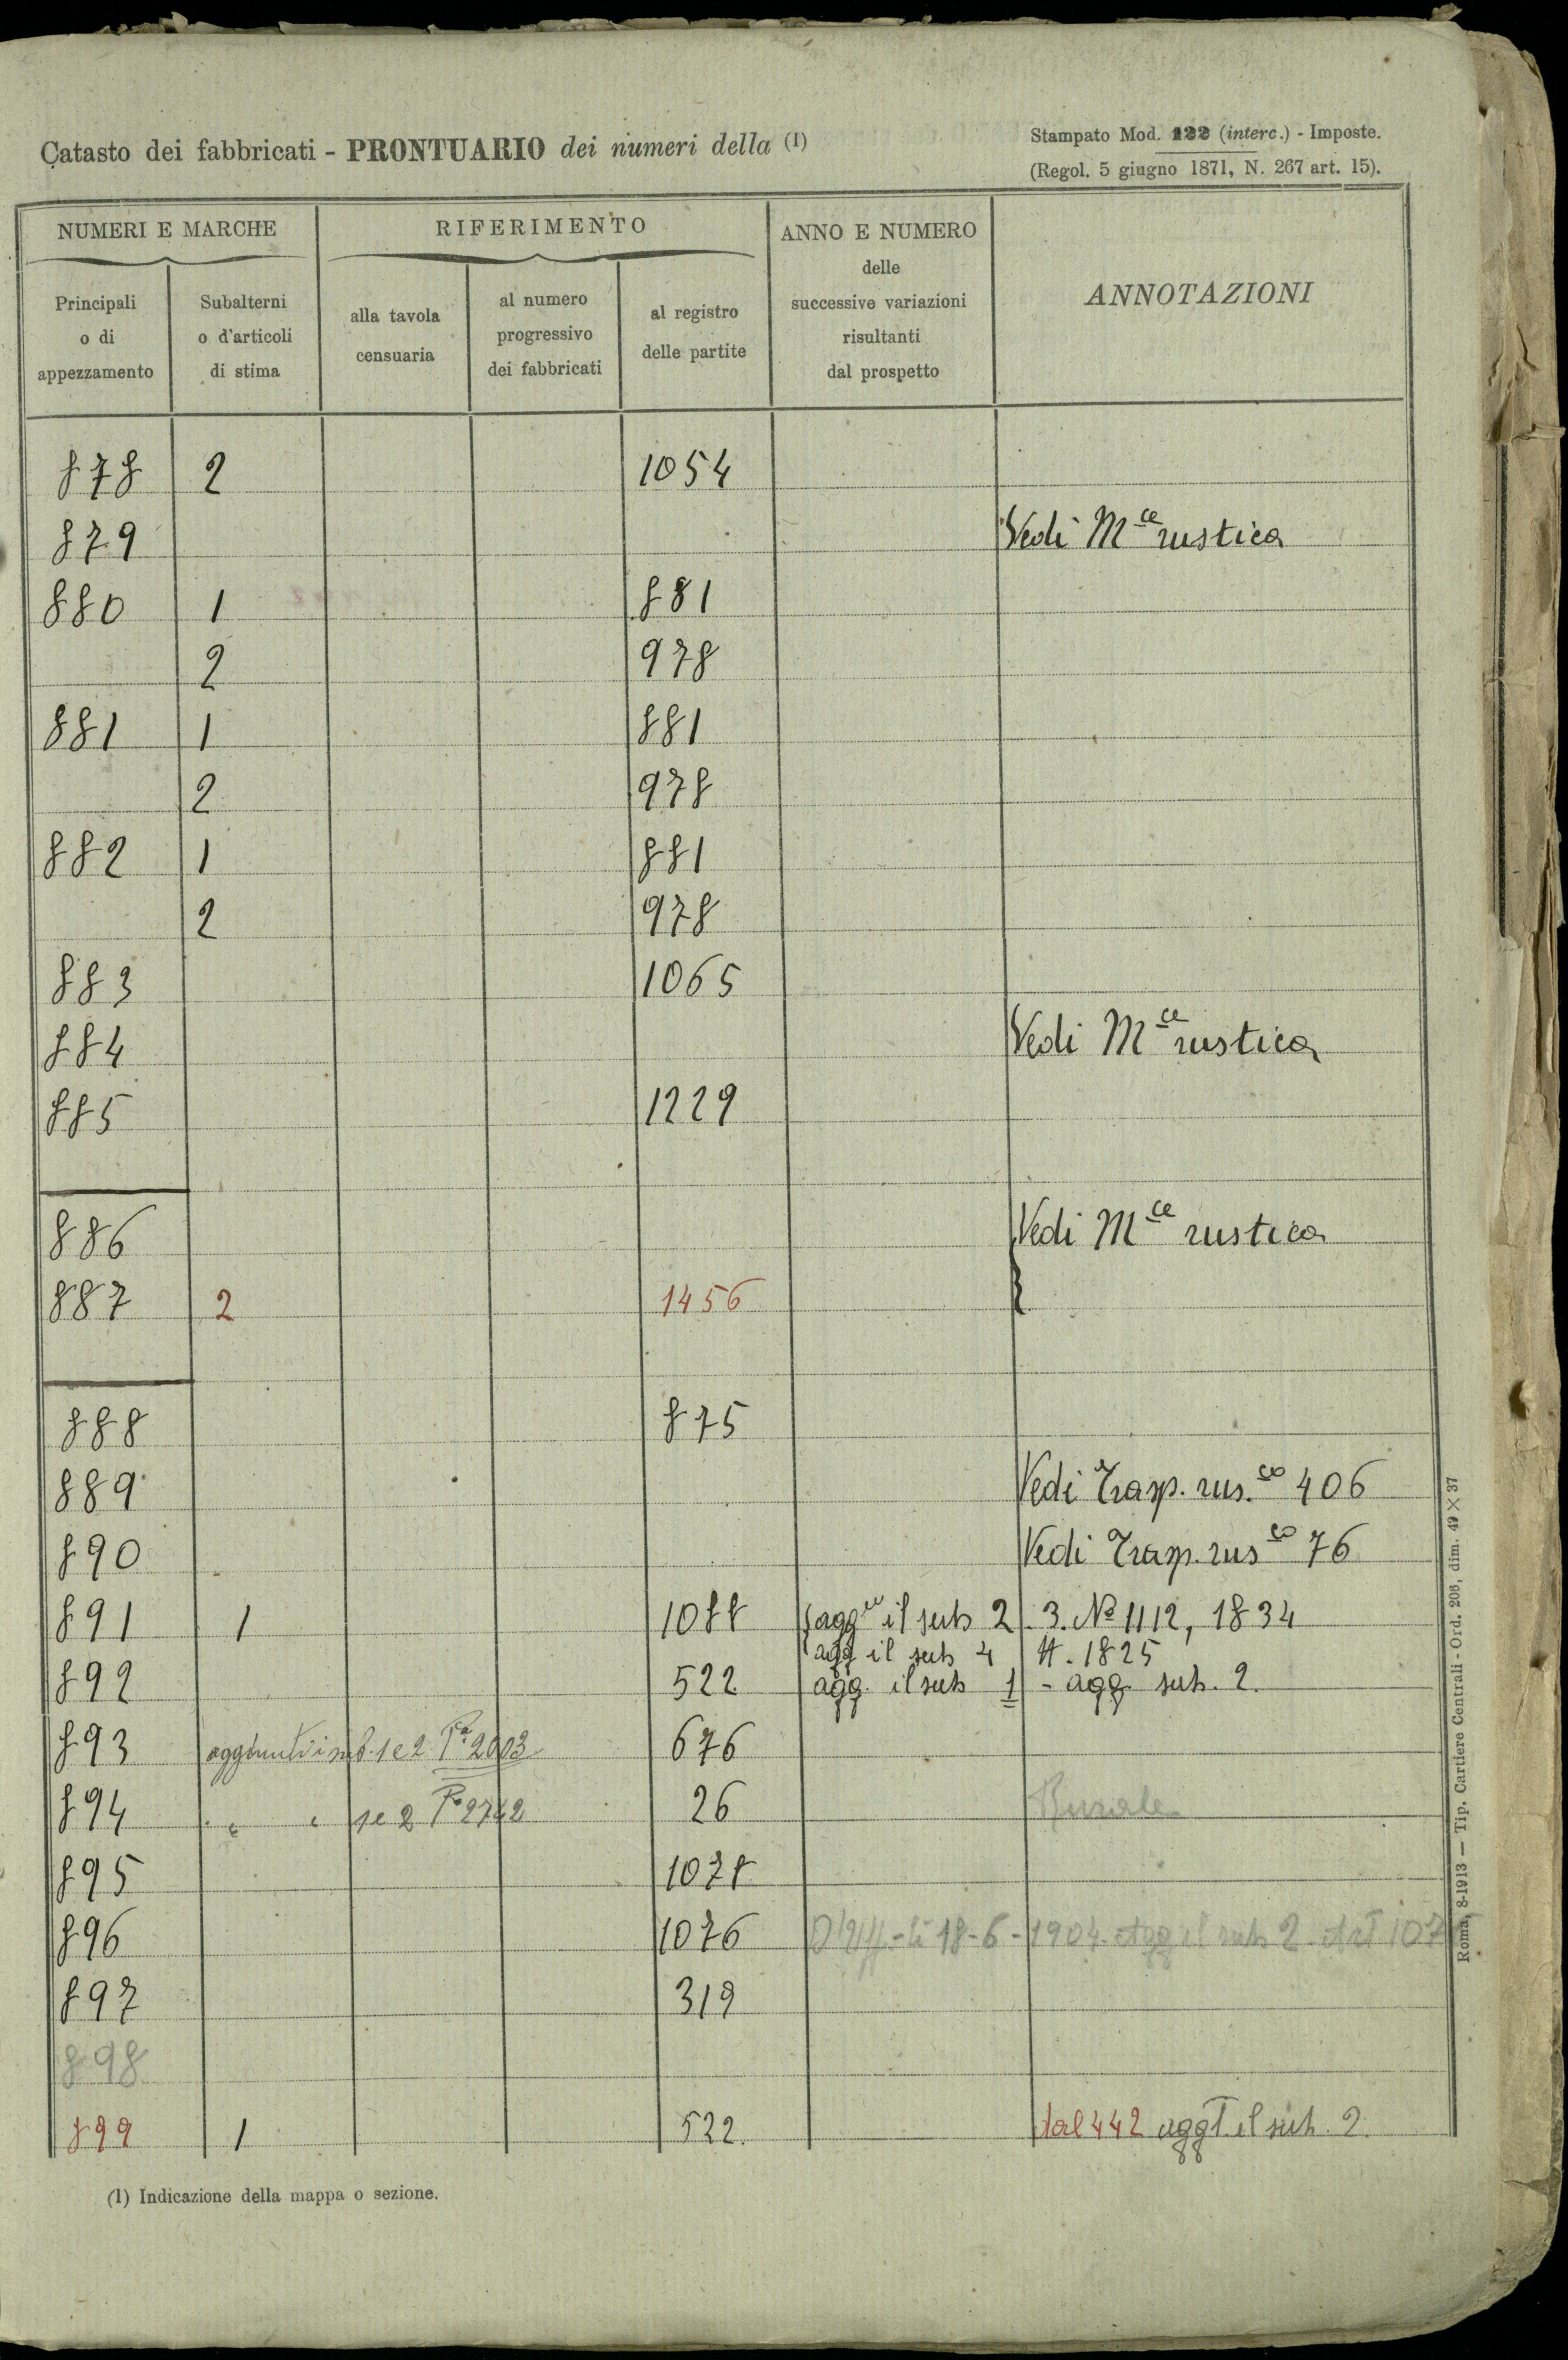 Catasto dei fabbricati - PRONTUARIO dei numeri della (1)
Stampato Mod. 122 (interc.) - Imposte.
(Regol. 5 giugno 1871, N. 267 art. 15).
NUMERI E MARCHE
RIFERIMENTO
ANNO E NUMERO
delle
successive variazioni
risultanti
dal prospetto
ANNOTAZIONI
Principali
o di
appezzamento
Subalterni
o d'articoli
di stima
alla tavola
censuaria
al numero
progressivo
dei fabbricati
al registro
delle partite
878 2 1054
879 Vedi Mce rustica
880 1 881
2 978
881 1 881
2 978
882 1 881
2 978
883 1065
884 Vedi Mce rustica
885 1229
886 Vedi Mce rustica
887 2 1456
888 875
889 Vedi Trasp. rus.co 406
890 Vedi Trasp. rus co 76
891 1 1088 agg il sub 2. 3. No 1112, 1834
agg il sub 4 1825
892 522 agg. il sub 1 - agg sub. 2.
893 aggiunti i sub. 1 e 2 Pa 2003 676
894 " " 1 e 2 Pa 2742 26 Rurale
895 1078
896 1076 li 18-6-1904. Agg il sub 2. Art
897 319
898
899 1 522. dal 442 aggt. il sub. 2.
(1) Indicazione della mappa o sezione.
Roma, 8-1913 — Tip. Cartiere Centrali - Ord. 206, dim. 49 × 37